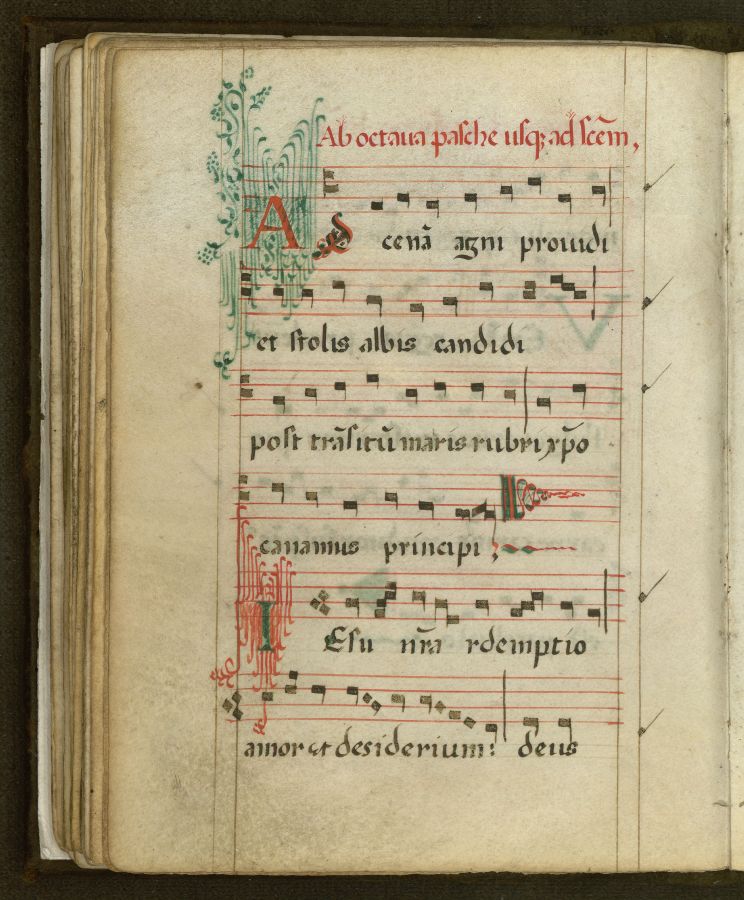 Ab octaua pasche usq; ad scēm,
Ad cenā agni prouidi
et stolis albis candidi
post trāsitū maris rubri xp̄o
canamus principi
IEsu nr̄a rdemptio
amor et desiderium: deus